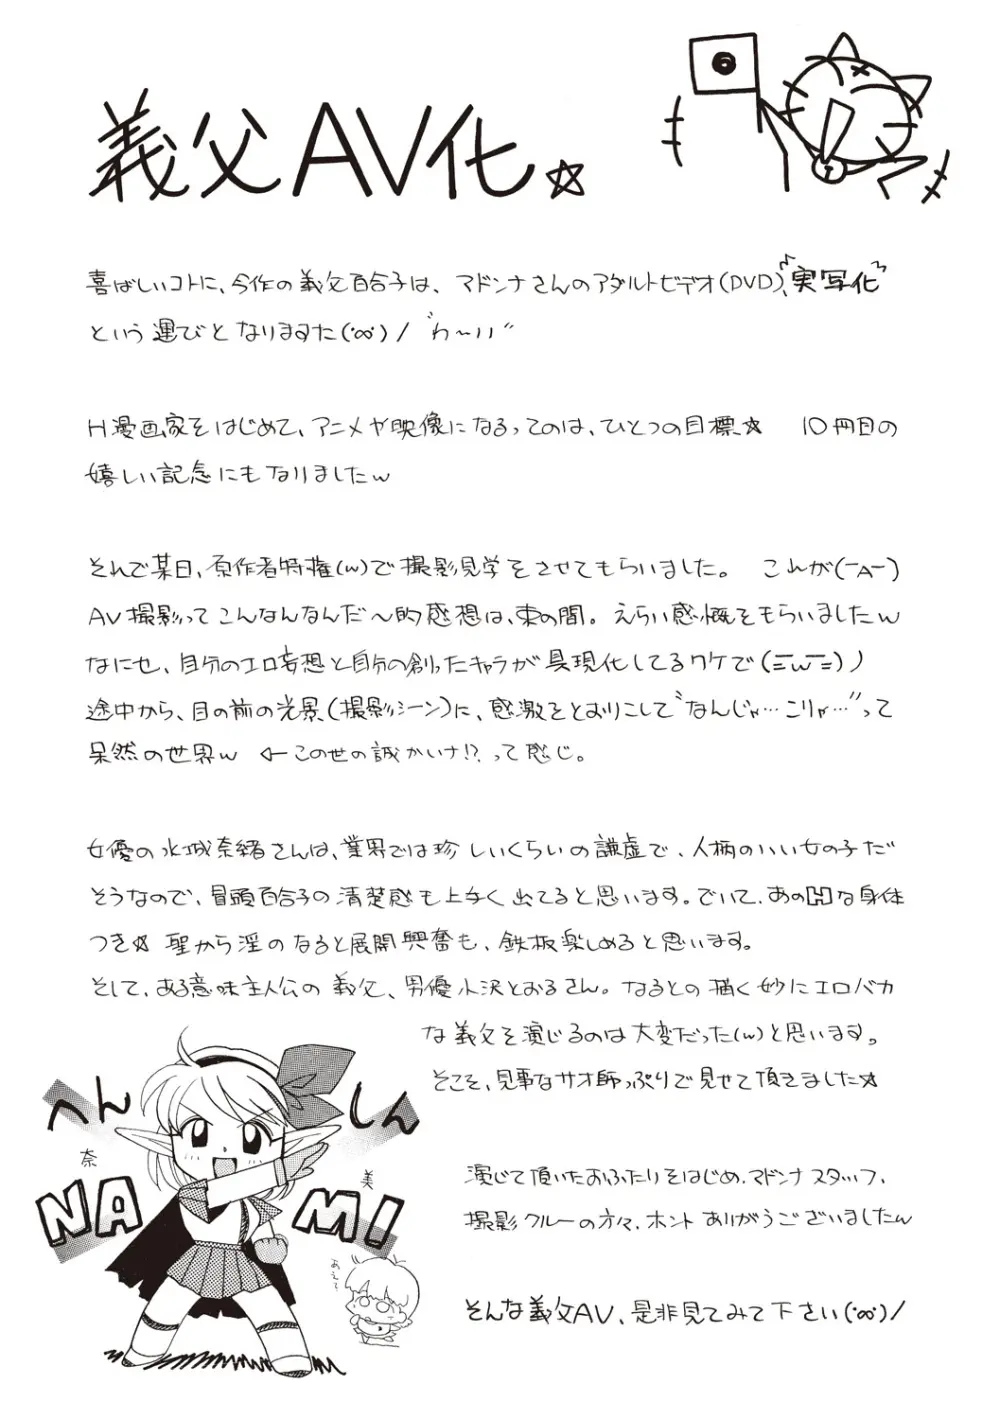 義父AV化☆
喜ばしいコトに、今作の義父百合子は、マドンナさんのアダルトビデオ(DVD)、実写化
という運びとなりますた(·∞·)/ "わ~い"
H漫画家をはじめて、アニメや映像になるってのは、ひとつの目標☆ 10冊目の
嬉しい記念にもなりましたw
それで某日、原作者特権(w)で撮影見学をさせてもらいました。 これが(ーAー)
AV撮影ってこんなんなんだ~的感想は、束の間。えらい感慨をもらいましたw
なにせ、自分のエロ妄想と自分の創ったキャラが具現化してるワケで(=w=)ノ
途中から、目の前の光景(撮影シーン)に、感激をとおりこして"なんじゃ…こりゃ…"って
呆然の世界w ←この世の誠かいナ!?って感じ。
女優の水城奈緒さんは、業界では珍しいくらいの謙虚で、人柄のいい女の子だ
そうなので、冒頭百合子の清楚感も上手く出てると思います。でいて、あのHな身体
つき☆ 聖から淫のなると展開興奮も、鉄板楽しめると思います。
そして、ある意味主人公の義父、男優小沢とおるさん。なるとの描く妙にエロバカ
な義父を演じるのは大変だった(w)と思います。
そこを、見事なサオ師っぷりで見せて頂きました☆
演じて頂いたおふたりをはじめ、マドンナスタッフ、
撮影クルーの方々、ホントありがうございましたw
そんな義父AV、是非見てみて下さい(·∞·)/
へんしん
奈美
NAMI
あえて